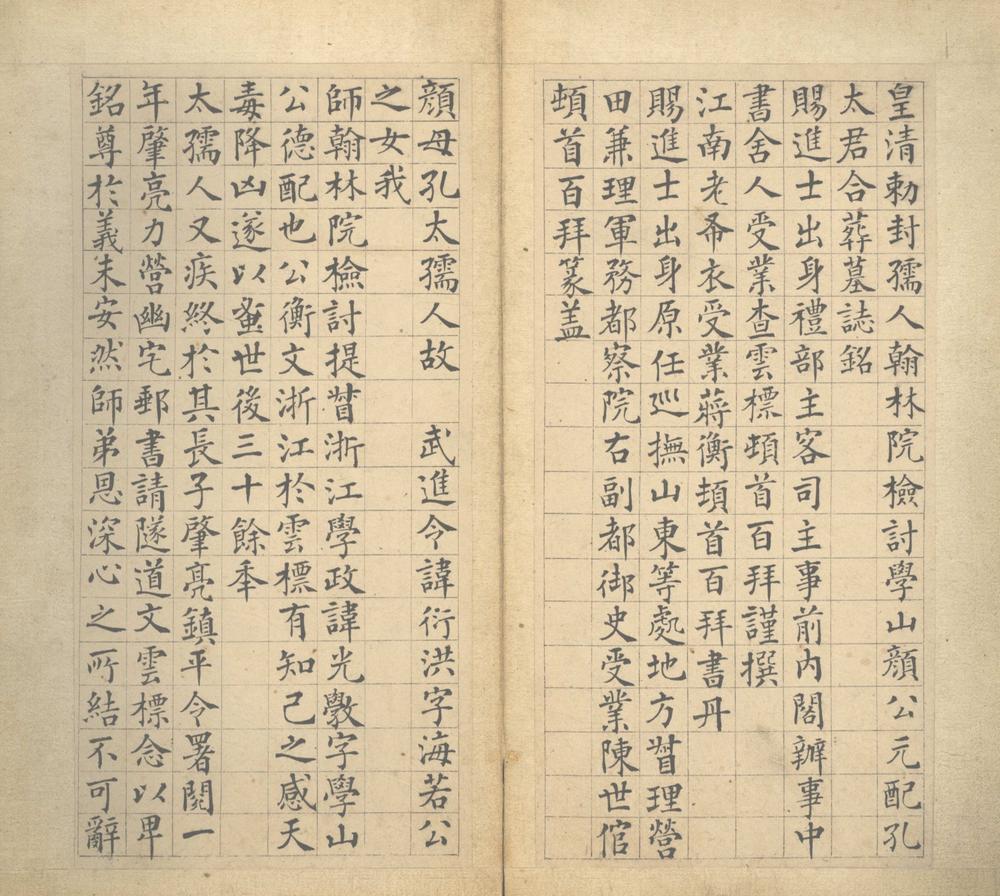 皇清勅封孺人翰林院檢討學山顔公元配孔
太君合葬墓誌銘
賜進士出身禮部主客司主事前内閣辦事中
書舍人受業查雲標頓首百拜謹撰
江南老布衣受業蔣衡頓首百拜書丹
賜進士出身原任廵撫山東等處地方督理營
田兼理軍務都察院右副都御史受業陳世倌
頓首百拜篆盖
顔母孔太孺人故 武進令諱衍洪字海若公
之女我
師翰林院檢討提督浙江學政諱光敩字學山
公德配也公衡文浙江於雲標有知己之感天
毒降凶遂以蚤世後三十餘年
太孺人又疾終於其長子肇亮鎮平令署閱一
年肇亮力營幽宅郵書請隧道文雲標念以卑
銘尊於義未安然師弟恩深心之所結不可辭